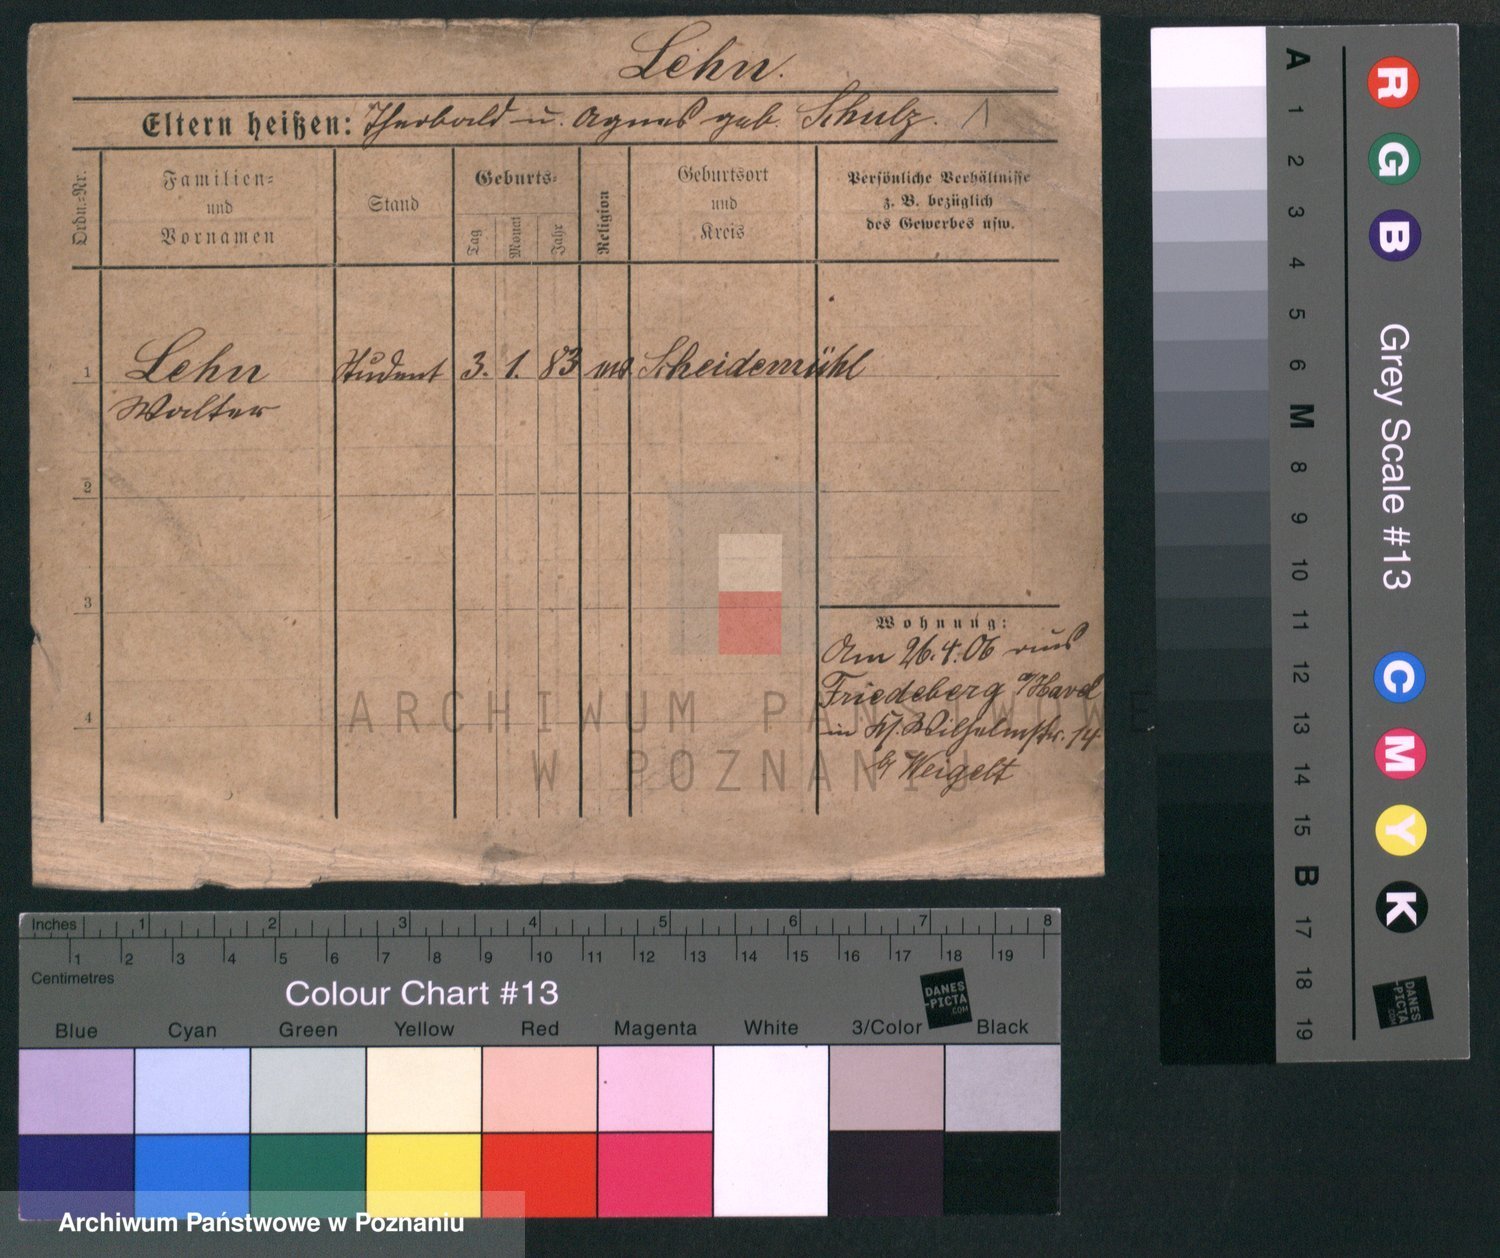 Lehn.
Eltern heißen: Theobald u. Agnes geb. Schulz.
Ordn.-Nr.
Familien-
und
Vornamen
Stand
Geburts-
Tag
Monat
Jahr
Religion
Geburtsort
und
Kreis
Persönliche Verhältnisse
z. B. bezüglich
des Gewerbes usw.
1
Lehn Student 3. 1. 83 Schneidemühl
Walter
2
3
4
Wohnung:
Am 26.4.06 aus
Friedeberg
in Wilhelmstr. 14
b/ Weigelt
ARCHIWUM PAŃSTWOWE
W POZNANIU
Inches 1 2 3 4 5 6 7 8
1 2 3 4 5 6 7 8 9 10 11 12 13 14 15 16 17 18 19
Centimetres
Colour Chart #13
DANES
-PICTA
.COM
Blue Cyan Green Yellow Red Magenta White 3/Color Black
Archiwum Państwowe w Poznaniu
A 1 2 3 4 5 6 M 8 9 10 11 12 13 14 15 B 17 18 19
R G B
Grey Scale #13
C M Y K
DANES
-PICTA
.COM